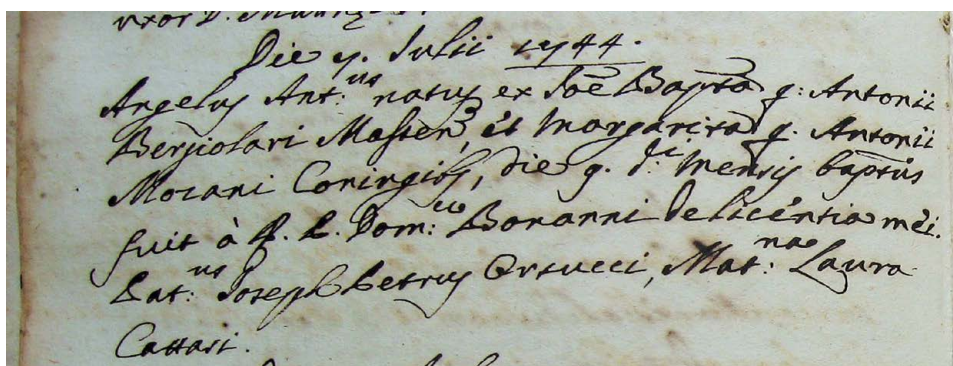 uxor D.
Die 7. Julii 1744.
Angelus Ant:us natus ex Joē Baptā q: Antonii
Bergiolari Massen, et Margarita q. Antonii
Mozani Coniugibs, die 9. di Mensis baptūs
fuit à R. P. Dom:co Bonanni de licentia mei.
Pat:us Joseph Petrus Ortucci, Mat:na Laura
Cattari.